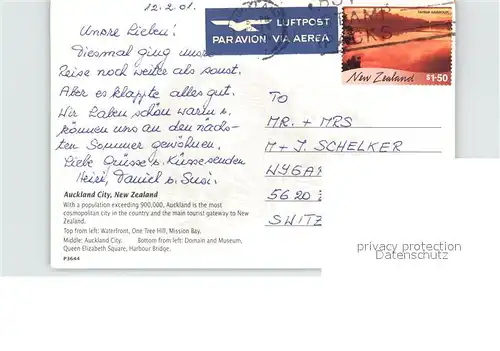 12.2.01.
Unsre Lieben!
Diesmal ging unsre
Reise noch weiter als sonst.
Aber es klappte alles gut.
Wir haben schön warm u.
können uns an den näch-
sten Sommer gewöhnen.
Liebe Grüsse u. Küsse senden
Heiri, Daniel u. Susi.
Auckland City, New Zealand
With a population exceeding 900,000, Auckland is the most
cosmopolitan city in the country and the main tourist gateway to New
Zealand.
Top from left: Waterfront, One Tree Hill, Mission Bay.
Middle: Auckland City. Bottom from left: Domain and Museum,
Queen Elizabeth Square, Harbour Bridge.
P3644
LUFTPOST
PAR AVION VIA AEREA
New Zealand
$1·50
TO
MR. + MRS
M + J. SCHELKER
WYGA
5620
SWITZ
privacy protection
Datenschutz